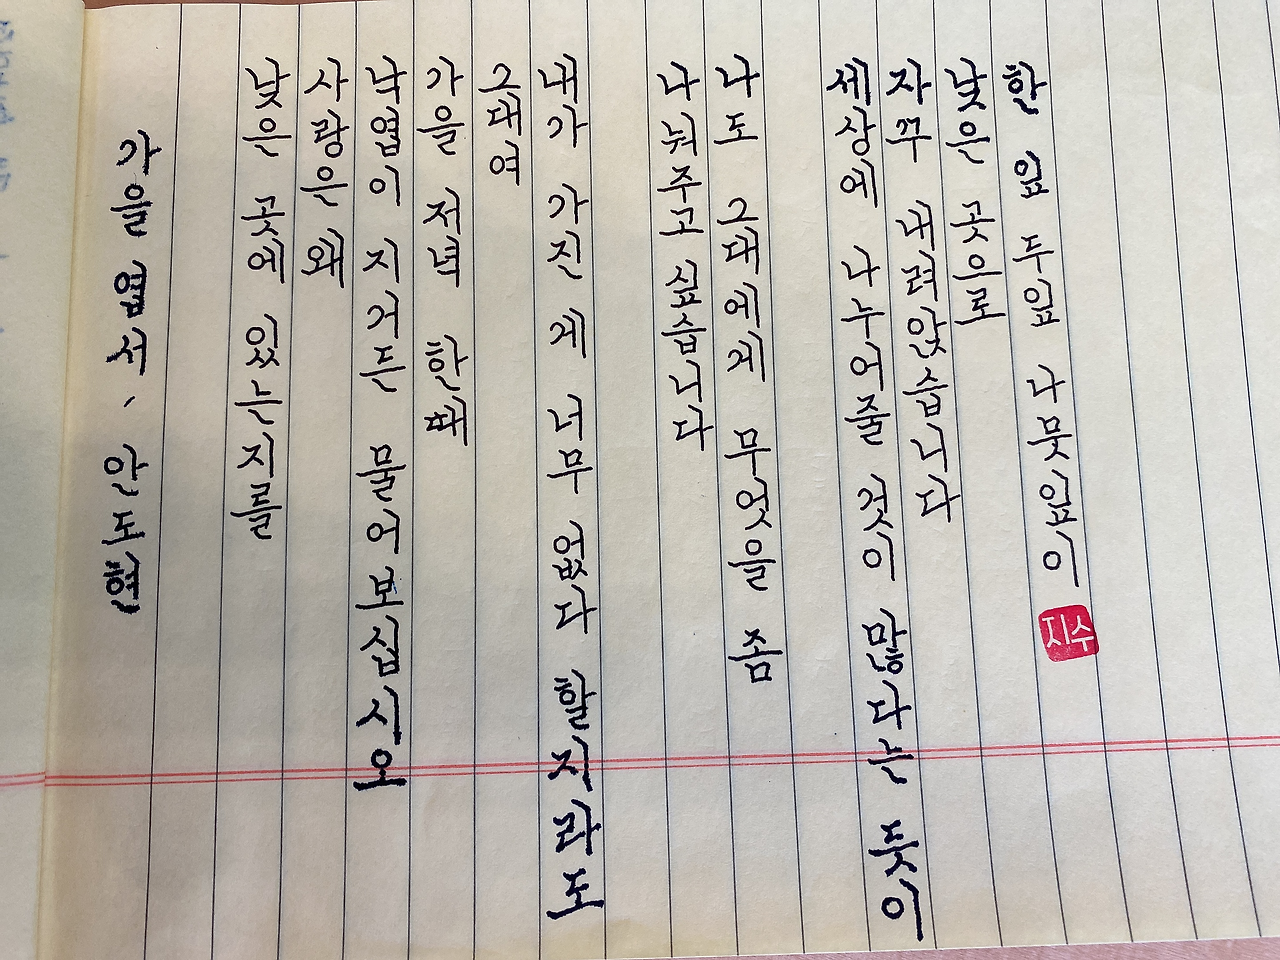 한 잎 두잎 나뭇잎이
낮은 곳으로
자꾸 내려앉습니다
세상에 나누어줄 것이 많다는 듯이
나도 그대에게 무엇을 좀
나눠주고 싶습니다
내가 가진 게 너무 없다 할지라도
그대여
가을 저녁 한때
낙엽이 지거든 물어보십시오
사랑은 왜
낮은 곳에 있는지를
가을 엽서, 안도현
지수